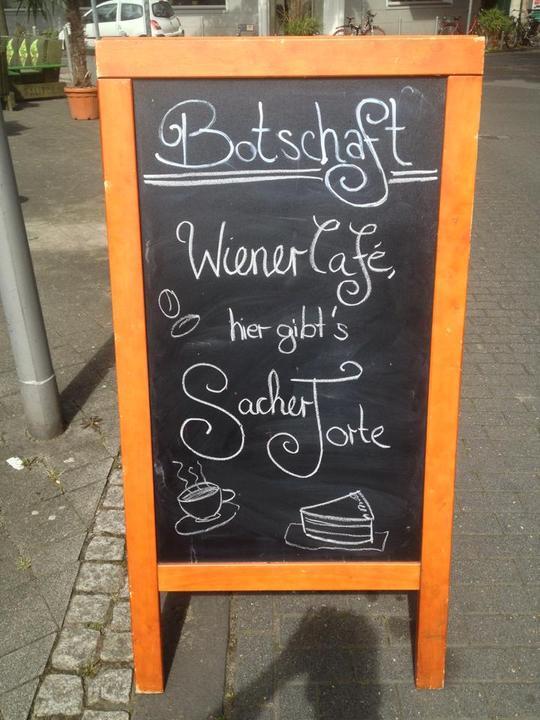 Botschaft
Wiener Café,
hier gibt's
Sacher Torte